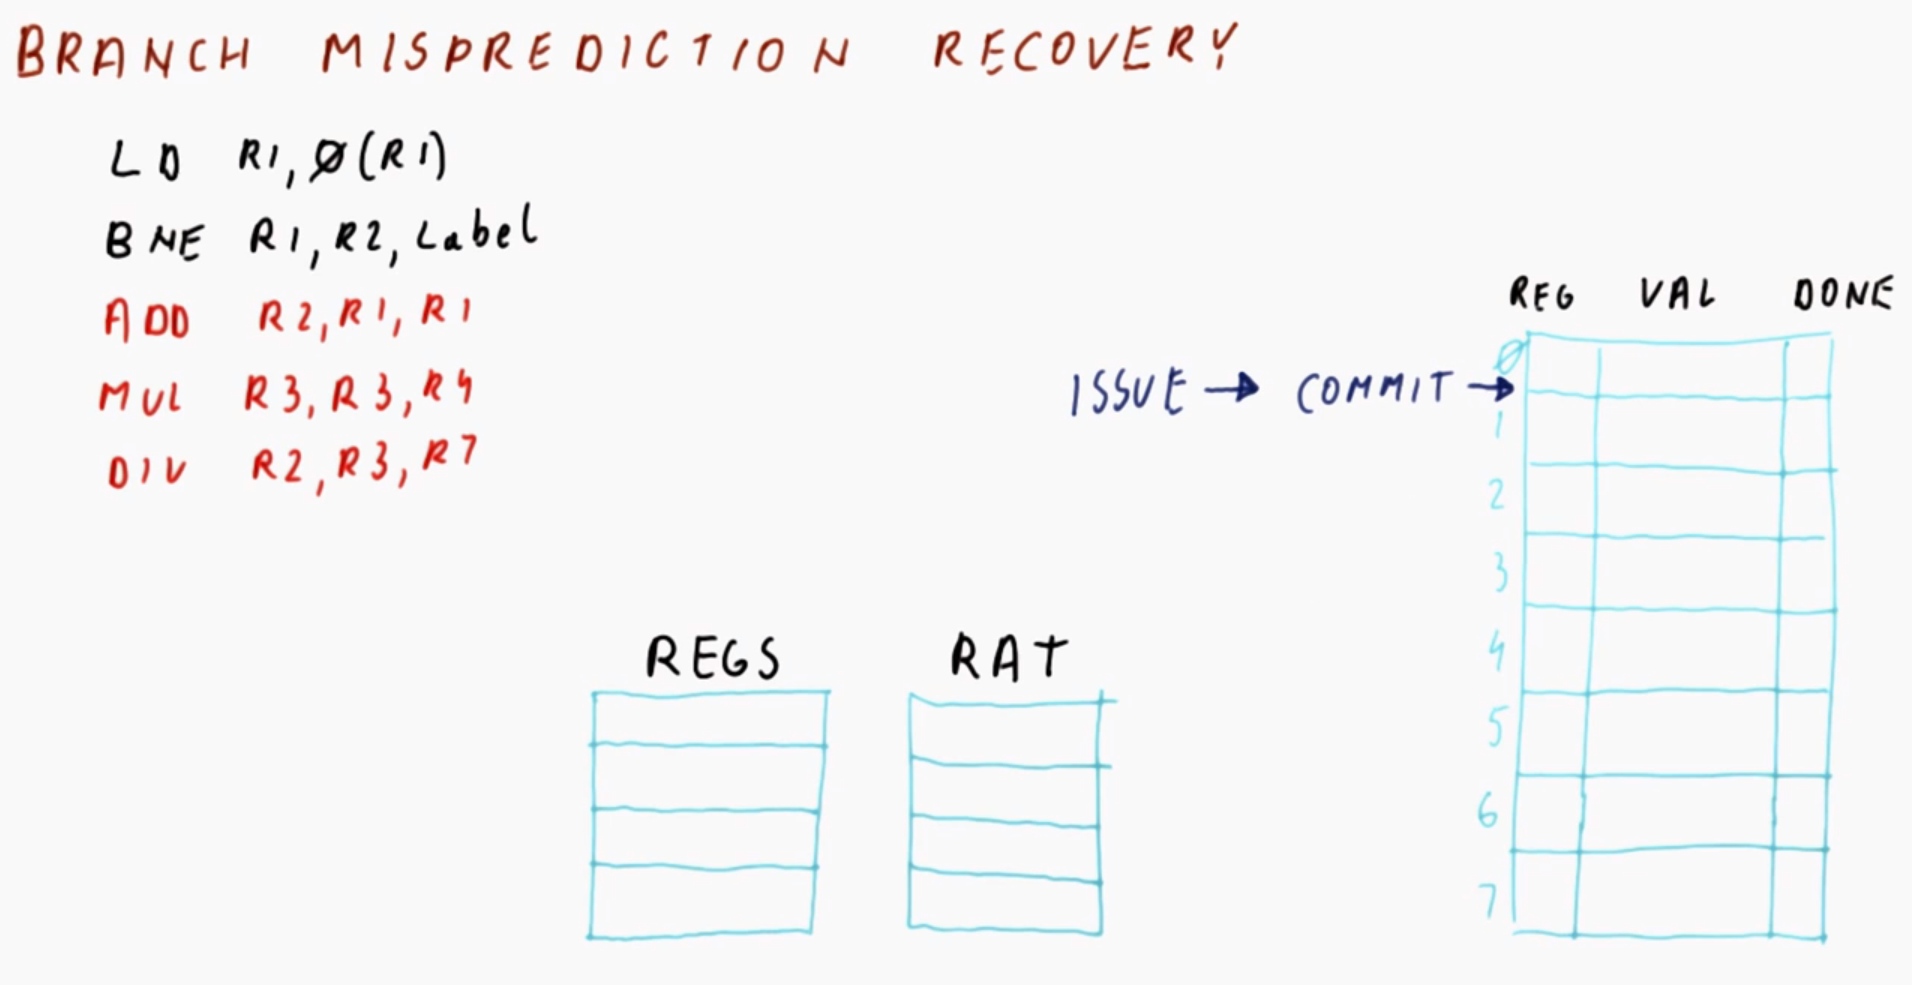 BRANCH MISPREDICTION RECOVERY
LD R1, Ø(R1)
BNE R1, R2, Label
ADD R2, R1, R1
MUL R3, R3, R4
DIV R2, R3, R7
REG VAL DONE
ISSUE → COMMIT →
Ø
1
2
3
4
5
6
7
REGS RAT